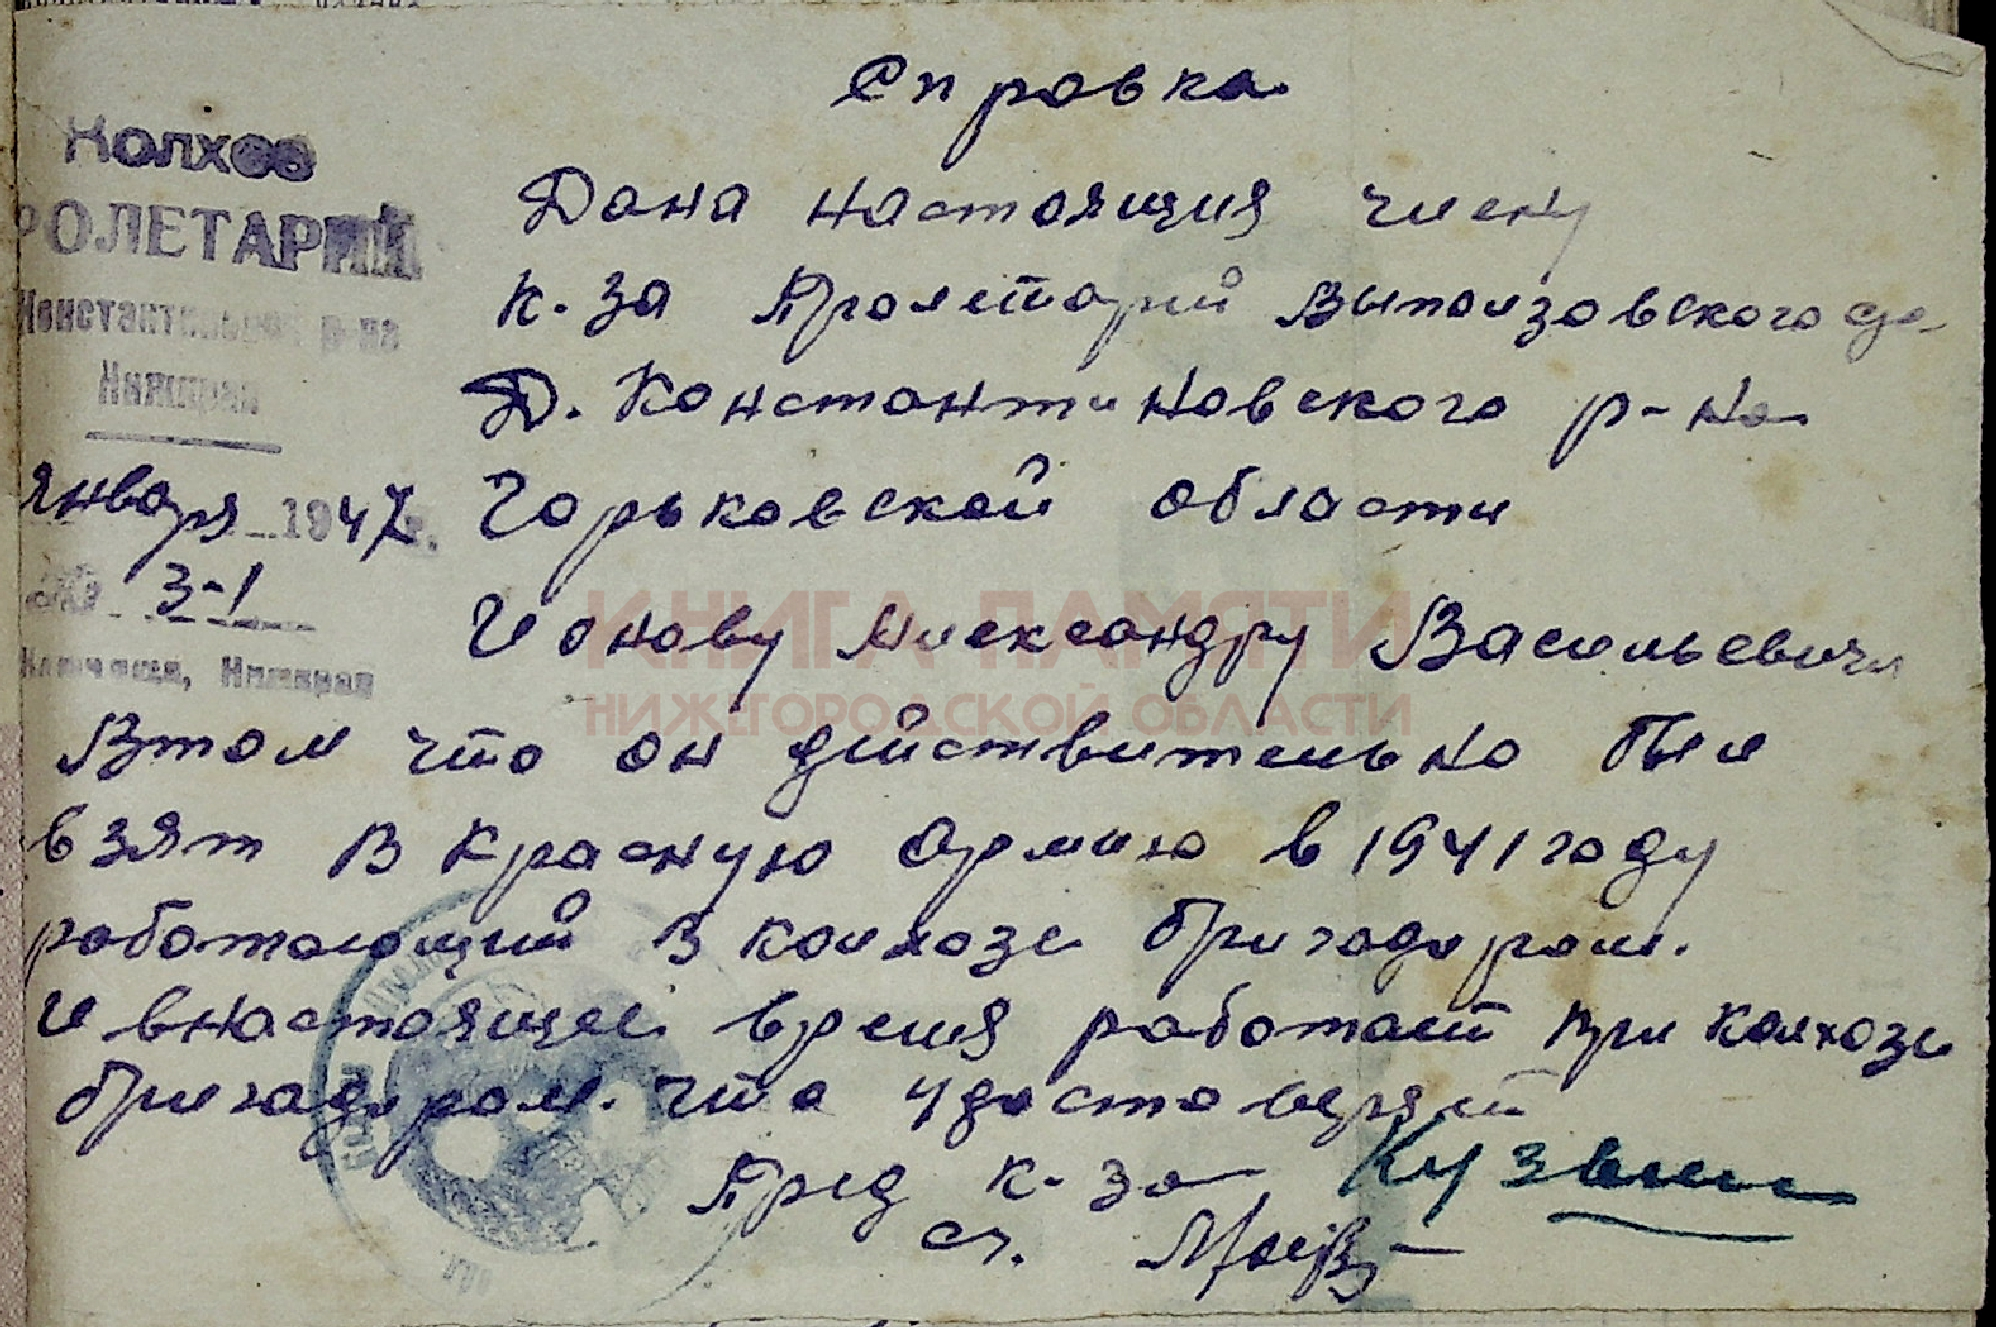 Справка
Колхоз
РОЛЕТАРИЙ
Константиновск р-на
Нижкрая
января 1947 г.
№ 3-1
Ключищи, Нижкрая
Дана настоящия члену
к-за Пролетарий Выползовского с/с
Д. Константиновского р-на
Горьковской области
Ионову Александру Васильевичу
КНИГА ПАМЯТИ
НИЖЕГОРОДСКОЙ ОБЛАСТИ
Втом что он действительно был
взят в Красную Армию в 1941 году
работающий в колхозе бригадером.
И внастоящее время работает при колхозе
бригадером. что удостоверяет
Пред к-за
сч.